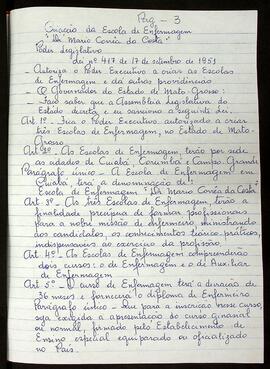 Pag - 3
Criação da Escola de Enfermagem
"Dr Mario Corrêa da Costa"
Poder Legislativo
Lei nº 417 de 17 de setembro de 1951
- Autoriza o Poder Executivo a criar as Escolas
de Enfermagem e dá outras providências
- O Governador do Estado de Mato-Grosso:
- Faço saber que a Assembleia Legislativa do
Estado decreta e eu sanciono a seguinte Lei.
Artº 1º - Fica o Poder Executivo, autorizado a criar
três Escolas de Enfermagem, no Estado de Mato-
Grosso
Artº 2º As Escolas de Enfermagem, terão por sede
as cidades de Cuiabá, Corumbá e Campo-Grande
Parágrafo único - A Escola de Enfermagem em
Cuiabá, terá a denominação de:
Escola de Enfermagem "Dr Mario Corrêa da Costa"
Artº 3º - As três Escolas de Enfermagem, terão a
finalidade precipua de formar profissionais
para a nobre missão de enfermeiro, ministrando
aos candidatos, os conhecimentos teórico-práticos,
indispensáveis ao exercício da profissão.
Artº 4º - As Escolas de Enfermagem compreenderão
dois cursos: o de Enfermagem e o de Auxiliar
de Enfermagem
Artº 5º - O curso de Enfermagem terá a duração de
36 meses e fornecerá o diploma de Enfermeiro
Parágrafo único - Que para a inscrição nesse curso,
será exigida a apresentação do curso ginasial
ou normal, firmado pelo Estabelecimento de
Ensino especial equiparado ou oficializado
no País.